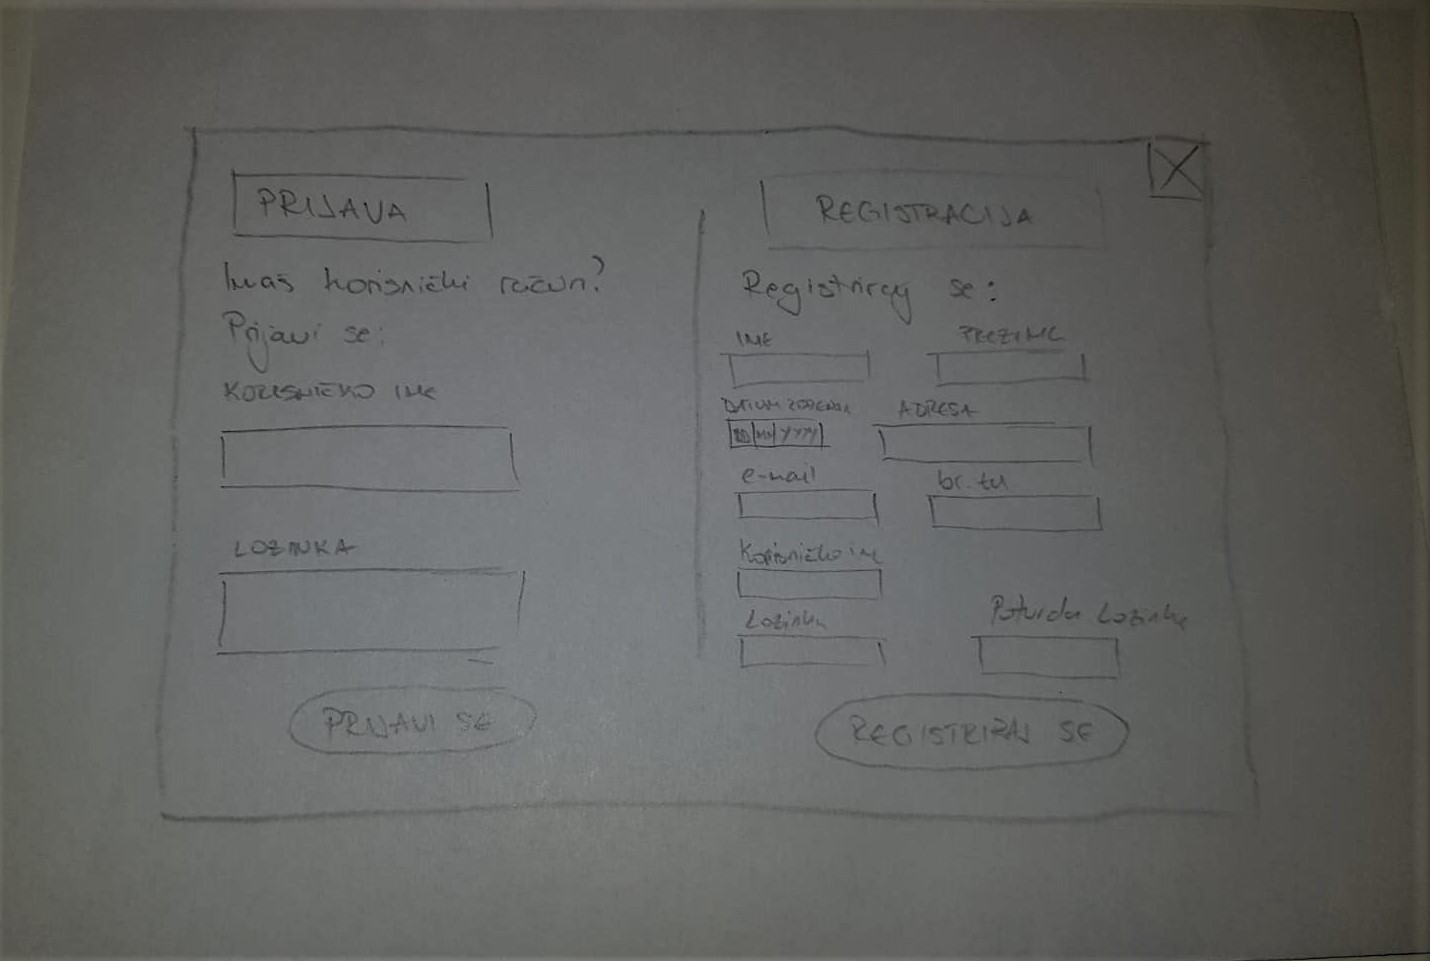 PRIJAVA
Imaš korisnički račun?
Prijavi se:
KORISNIČKO IME
LOZINKA
PRIJAVI SE
REGISTRACIJA
Registriraj se:
IME PREZIME
DATUM ROĐENJA ADRESA
DD MM YYYY
e-mail br. tel
Korisničko ime
Lozinka Potvrda Lozinke
REGISTRIRAJ SE